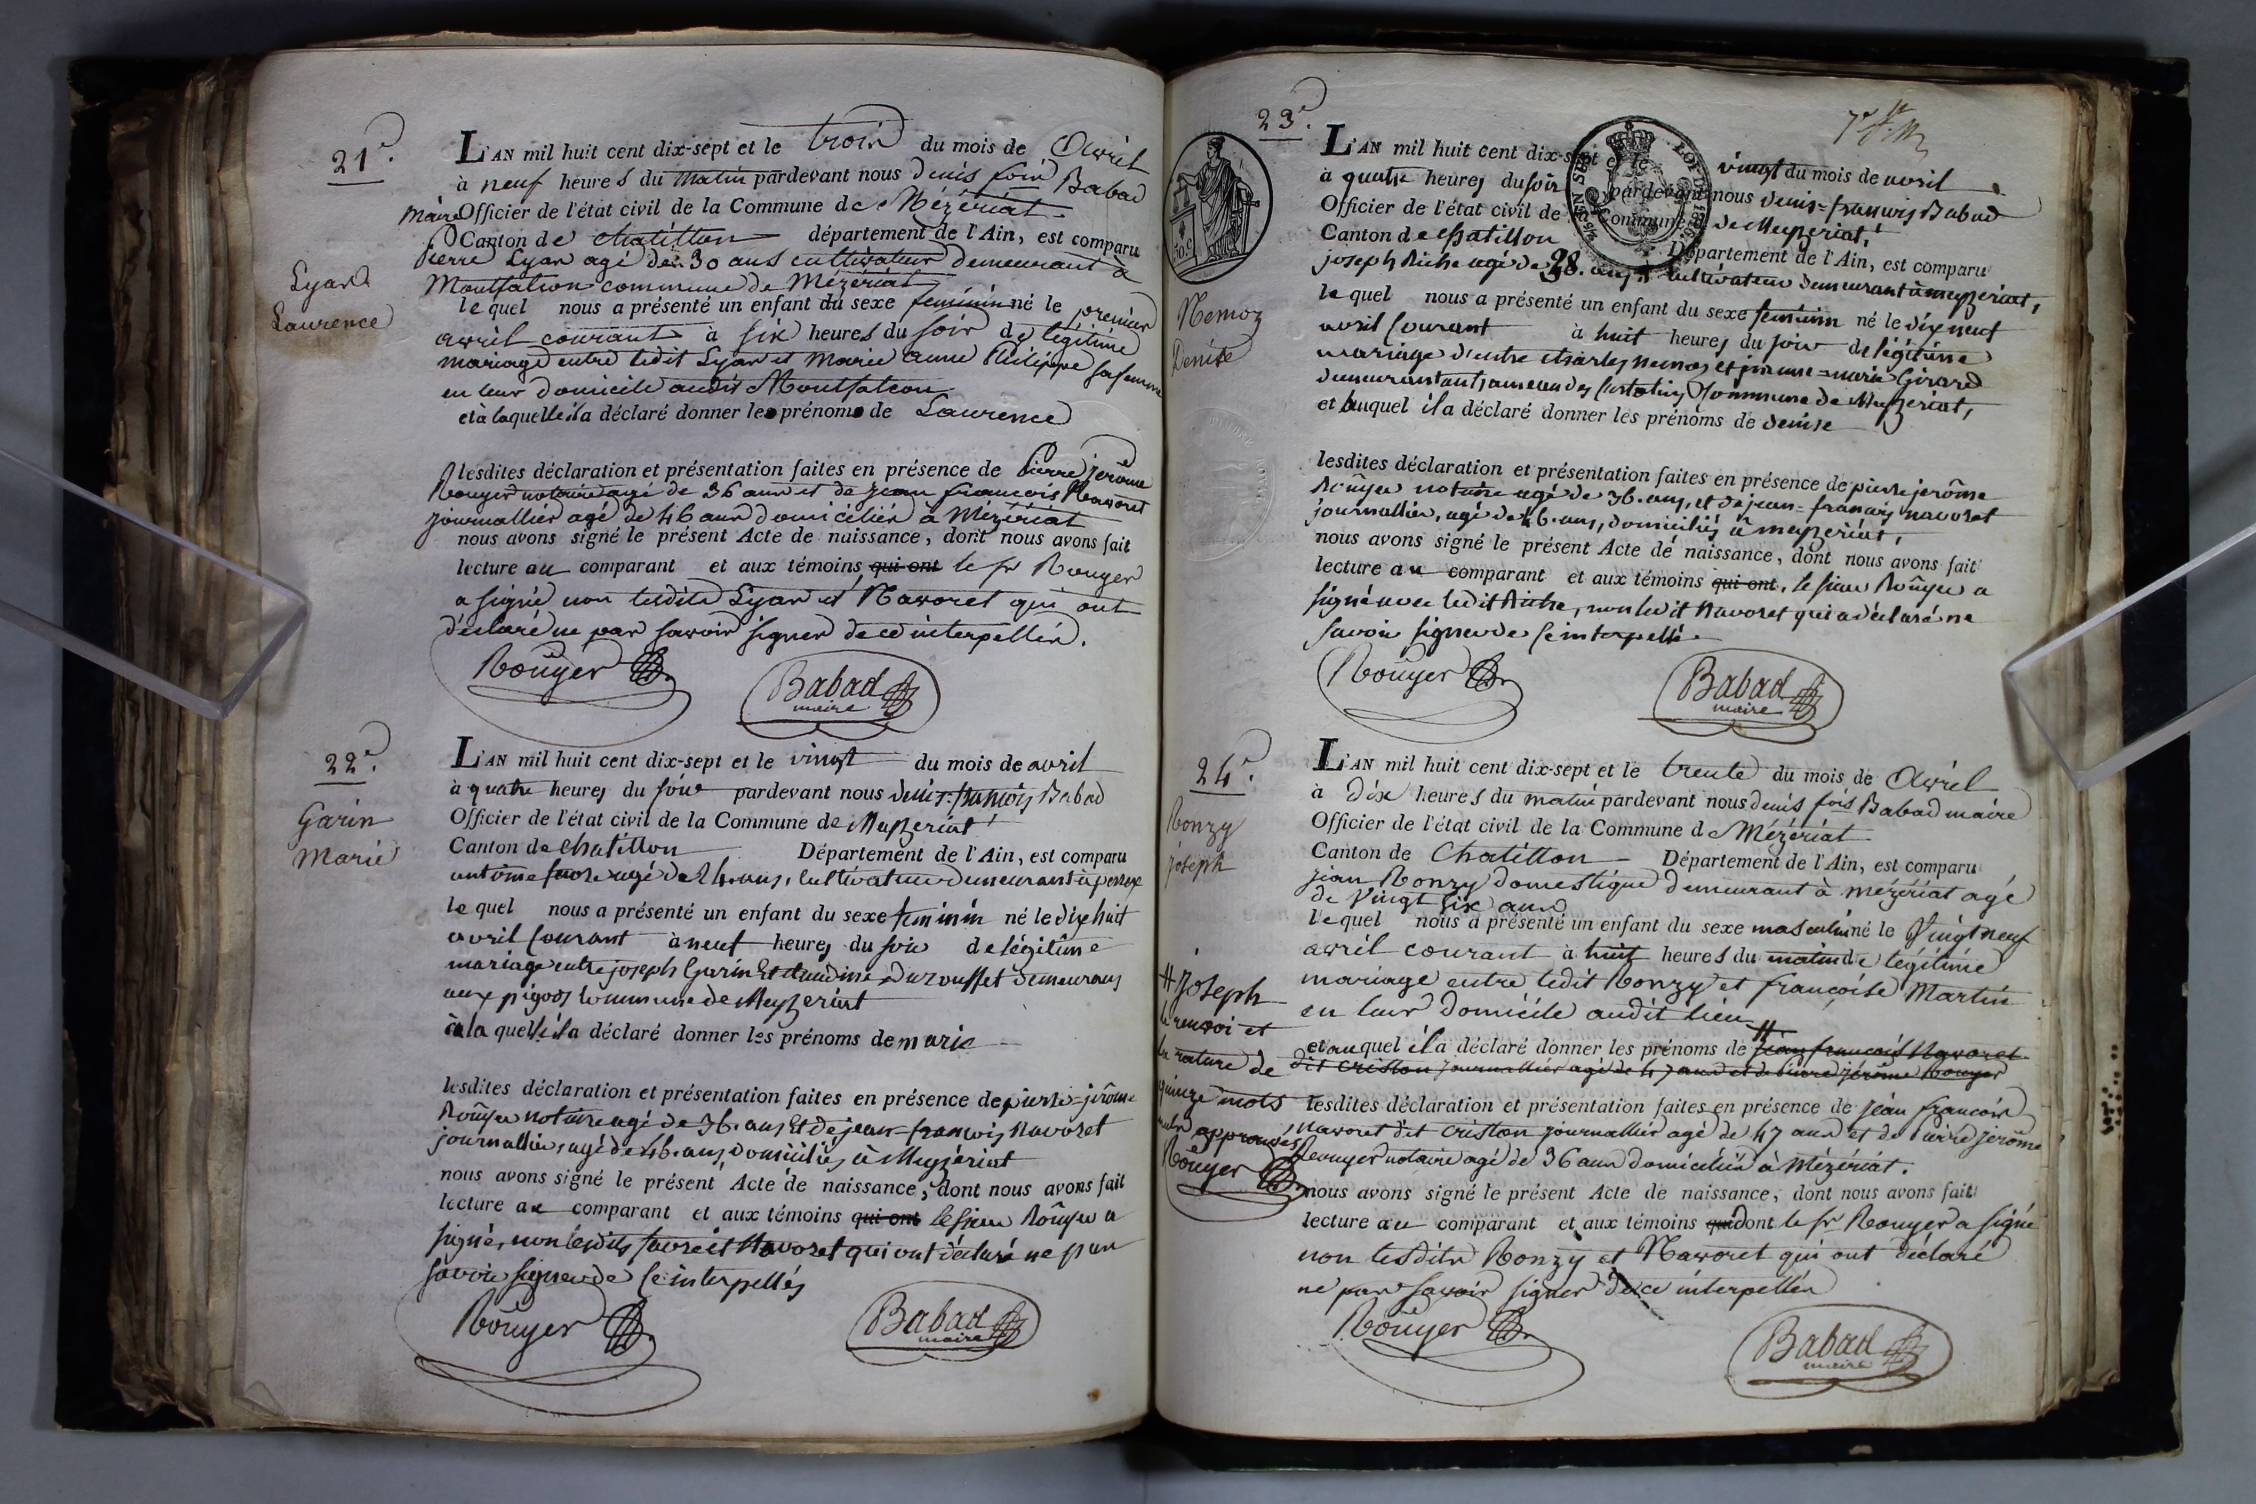 21e.
Lyard
Laurence
L'AN mil huit cent dix-sept et le trois du mois de Avril
à neuf heures du matin pardevant nous denis fois Babad
maire Officier de l'état civil de la Commune de Mézériat
Canton de chatillon département de l'Ain, est comparu
Pierre Lyar agé de 30 ans cultivateur demeurant à
Montfalcon commune de Mézériat
le quel nous a présenté un enfant du sexe feminin né le premier
avril courant à six heures du soir de légitime
mariage entre ledit Lyar et Marie anne Philippe sa femme
en leur domicile audit Montfalcon
et à laquelle il a déclaré donner les prénoms de Laurence
lesdites déclaration et présentation faites en présence de Pierre jerôme
Rouyer notaire agé de 36 ans et de jean francois Navoret
journallier agé de 46 ans domiciliés a Mézériat
nous avons signé le présent Acte de naissance, dont nous avons fait
lecture au comparant et aux témoins qui ont le sr Rouyer
a signé non lesdits Lyar et Navoret qui ont
déclaré ne pas savoir signer de ce interpellés.
Roüyer
Babad
maire
22e.
Garin
Marie
L'AN mil huit cent dix-sept et le vingt du mois de avril
à quatre heures du soir pardevant nous denis-françois Babad
Officier de l'état civil de la Commune de Meyzeriat
Canton de chatillon Département de l'Ain, est comparu
antoine favre agé de 24. ans, cultivateur demeurant à perrex
le quel nous a présenté un enfant du sexe feminin né le dix huit
avril courant à neuf heures du soir de légitime
mariage entre joseph Garin Et claudine Durousset demeurans
aux pigods commune de Meyzeriat
à la quelle il a déclaré donner les prénoms de marie
lesdites déclaration et présentation faites en présence de pierre-jérôme
Roüyer notaire agé de 36. ans Et de jean-françois navoret
journallier, agé de 46. ans, domiciliés à Meyzériat
nous avons signé le présent Acte de naissance, dont nous avons fait
lecture au comparant et aux témoins qui ont le sieur Roüyer a
signé, non lesdits favre et Navoret qui ont déclaré ne pas
savoir signer de ce interpellés
Roüyer
Babad
maire
23e.
Nemoz
Denise
L'AN mil huit cent dix-sept et le vingt du mois de avril
à quatre heures du soir pardevant nous denis-françois Babad
Officier de l'état civil de la Commune de Meyzeriat,
Canton de chatillon Département de l'Ain, est comparu
joseph Riche agé de 38. ans, cultivateur demeurant à meyzeriat,
le quel nous a présenté un enfant du sexe feminin né le dix neuf
avril courant à huit heures du soir de légitime
mariage d'entre charles nemoz et jeanne-marie Girard
demeurant au hameau des Commune de Meyzeriat,
et auquel il a déclaré donner les prénoms de denise
lesdites déclaration et présentation faites en présence de pierre jerôme
Roüyer notaire agé de 36. ans, et de jean-françois navoret
journallier, agé de 46. ans, domiciliés à meyzériat,
nous avons signé le présent Acte de naissance, dont nous avons fait
lecture au comparant et aux témoins qui ont, le sieur Roüyer a
signé avec ledit Riche, non ledit Navoret qui a déclaré ne
savoir signer de ce interpellé.
Roüyer
Babad
maire
24e.
Ronzy
joseph
L'AN mil huit cent dix-sept et le trente du mois de Avril
à dix heures du matin pardevant nous denis fois Babad maire
Officier de l'état civil de la Commune de Mézériat
Canton de Chatillon Département de l'Ain, est comparu
jean Ronzy domestique demeurant à mézériat agé
de vingt six ans
le quel nous a présenté un enfant du sexe masculin né le vingt neuf
avril courant à huit heures du matin de légitime
mariage entre ledit Ronzy et françoise Martin
en leur domicile audit lieu
et auquel il a déclaré donner les prénoms de # jean francois Navoret
dit criston journallier agé de 47 ans et de Pierre jérôme Rouyer
# joseph
le renvoi et
la rature de
quinze mots
nuls approuvés
Roüyer
lesdites déclaration et présentation faites en présence de jean francois
Navoret dit criston journallier agé de 47 ans et de Pierre jerôme
Rouyer notaire agé de 36 ans domiciliés à Mézériat.
nous avons signé le présent Acte de naissance, dont nous avons fait
lecture au comparant et aux témoins qui dont le sr Rouyer a signé
non lesdits Ronzy et Navoret qui ont déclaré
ne pas savoir signer de ce interpellés
Roüyer
Babad
maire